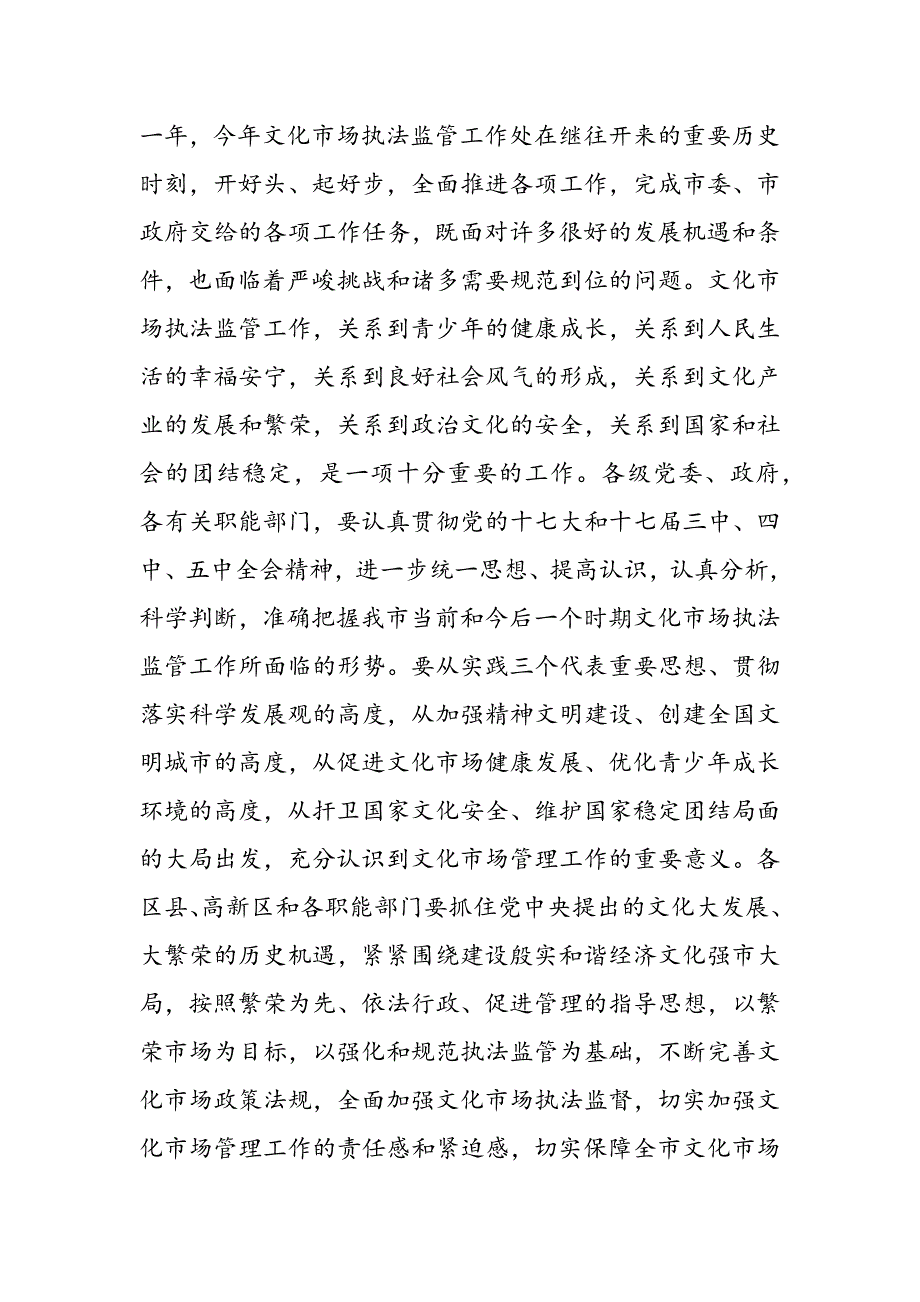 一年，今年文化市场执法监管工作处在继往开来的重要历史
时刻，开好头、起好步，全面推进各项工作，完成市委、市
政府交给的各项工作任务，既面对许多很好的发展机遇和条
件，也面临着严峻挑战和诸多需要规范到位的问题。文化市
场执法监管工作，关系到青少年的健康成长，关系到人民生
活的幸福安宁，关系到良好社会风气的形成，关系到文化产
业的发展和繁荣，关系到政治文化的安全，关系到国家和社
会的团结稳定，是一项十分重要的工作。各级党委、政府，
各有关职能部门，要认真贯彻党的十七大和十七届三中、四
中、五中全会精神，进一步统一思想、提高认识，认真分析，
科学判断，准确把握我市当前和今后一个时期文化市场执法
监管工作所面临的形势。要从实践三个代表重要思想、贯彻
落实科学发展观的高度，从加强精神文明建设、创建全国文
明城市的高度，从促进文化市场健康发展、优化青少年成长
环境的高度，从扞卫国家文化安全、维护国家稳定团结局面
的大局出发，充分认识到文化市场管理工作的重要意义。各
区县、高新区和各职能部门要抓住党中央提出的文化大发展、
大繁荣的历史机遇，紧紧围绕建设殷实和谐经济文化强市大
局，按照繁荣为先、依法行政、促进管理的指导思想，以繁
荣市场为目标，以强化和规范执法监管为基础，不断完善文
化市场政策法规，全面加强文化市场执法监督，切实加强文
化市场管理工作的责任感和紧迫感，切实保障全市文化市场